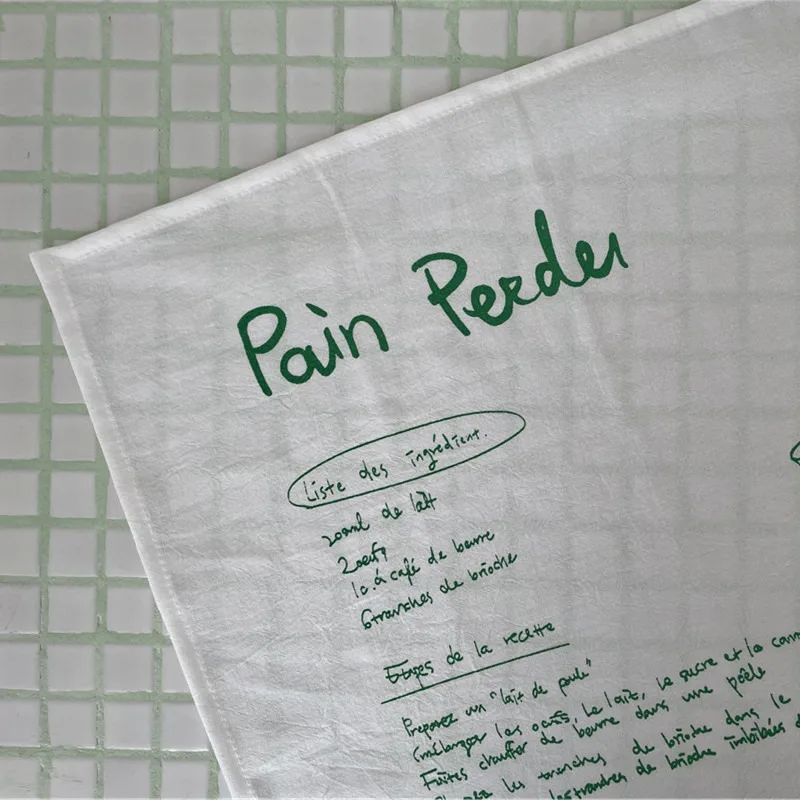 Pain Perdu
Liste des ingrédient.
200ml de lait
2 oeufs
1c.à café de beurre
6 tranches de brioche
Etapes de la recette
Préparez un "lait de poule"
(mélangez les oeufs, le lait, le sucre et la cann
Faites chauffer de beurre dans une poêle
les tranches de brioche dans le
les tranches de brioche imbibées d